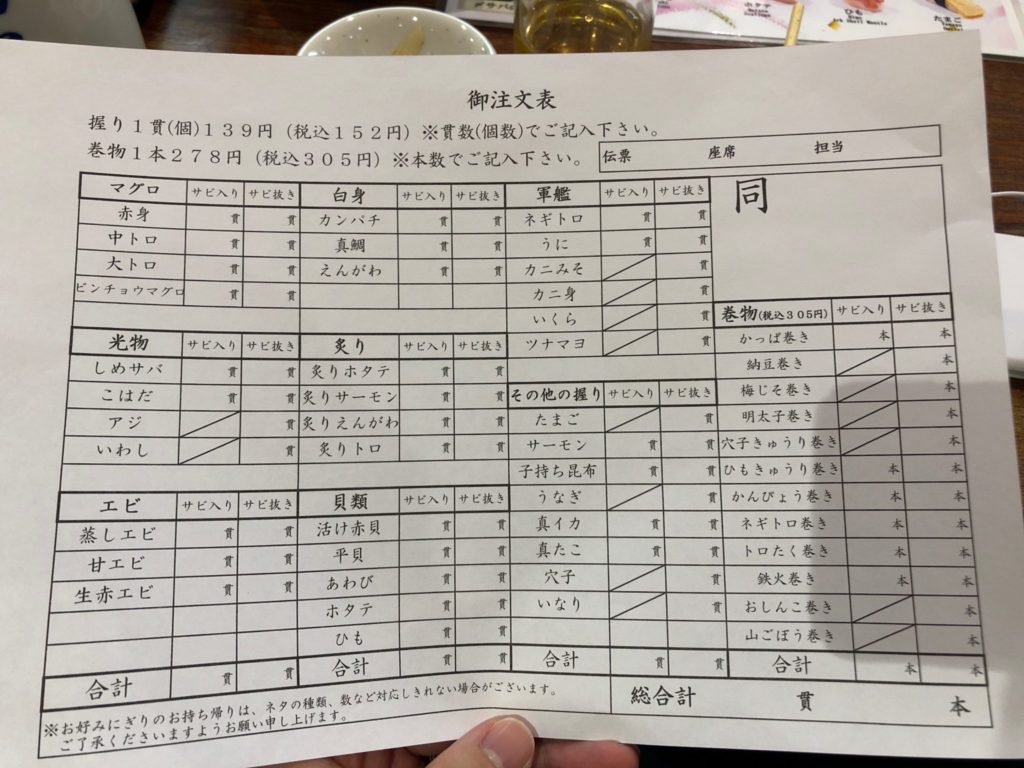 ホタテ
ひも
Ark Shell Mantle
たまご
御注文表
握り１貫(個)１３９円（税込１５２円）※貫数(個数)でご記入下さい。
巻物１本２７８円（税込３０５円）※本数でご記入下さい。
伝票 座席 担当
同
マグロ サビ入り サビ抜き
赤身 貫 貫
中トロ 貫 貫
大トロ 貫 貫
ビンチョウマグロ 貫 貫
光物 サビ入り サビ抜き
しめサバ 貫 貫
こはだ 貫 貫
アジ 貫
いわし 貫
エビ サビ入り サビ抜き
蒸しエビ 貫 貫
甘エビ 貫 貫
生赤エビ 貫 貫
合計 貫 貫
白身 サビ入り サビ抜き
カンパチ 貫 貫
真鯛 貫 貫
えんがわ 貫 貫
炙り サビ入り サビ抜き
炙りホタテ 貫 貫
炙りサーモン 貫 貫
炙りえんがわ 貫 貫
炙りトロ 貫 貫
貝類 サビ入り サビ抜き
活け赤貝 貫 貫
平貝 貫 貫
あわび 貫 貫
ホタテ 貫 貫
ひも 貫 貫
合計 貫 貫
軍艦 サビ入り サビ抜き
ネギトロ 貫 貫
うに 貫 貫
カニみそ 貫
カニ身 貫
いくら 貫
ツナマヨ 貫
その他の握り サビ入り サビ抜き
たまご 貫
サーモン 貫 貫
子持ち昆布 貫 貫
うなぎ 貫
真イカ 貫 貫
真たこ 貫 貫
穴子 貫
いなり 貫
合計 貫 貫
巻物(税込３０５円) サビ入り サビ抜き
かっぱ巻き 本 本
納豆巻き 本
梅じそ巻き 本
明太子巻き 本
穴子きゅうり巻き 本
ひもきゅうり巻き 本 本
かんぴょう巻き 本 本
ネギトロ巻き 本 本
トロたく巻き 本 本
鉄火巻き 本 本
おしんこ巻き 本
山ごぼう巻き 本
合計 本 本
総合計 貫 本
※お好みにぎりのお持ち帰りは、ネタの種類、数など対応しきれない場合がございます。
ご了承くださいますようお願い申し上げます。